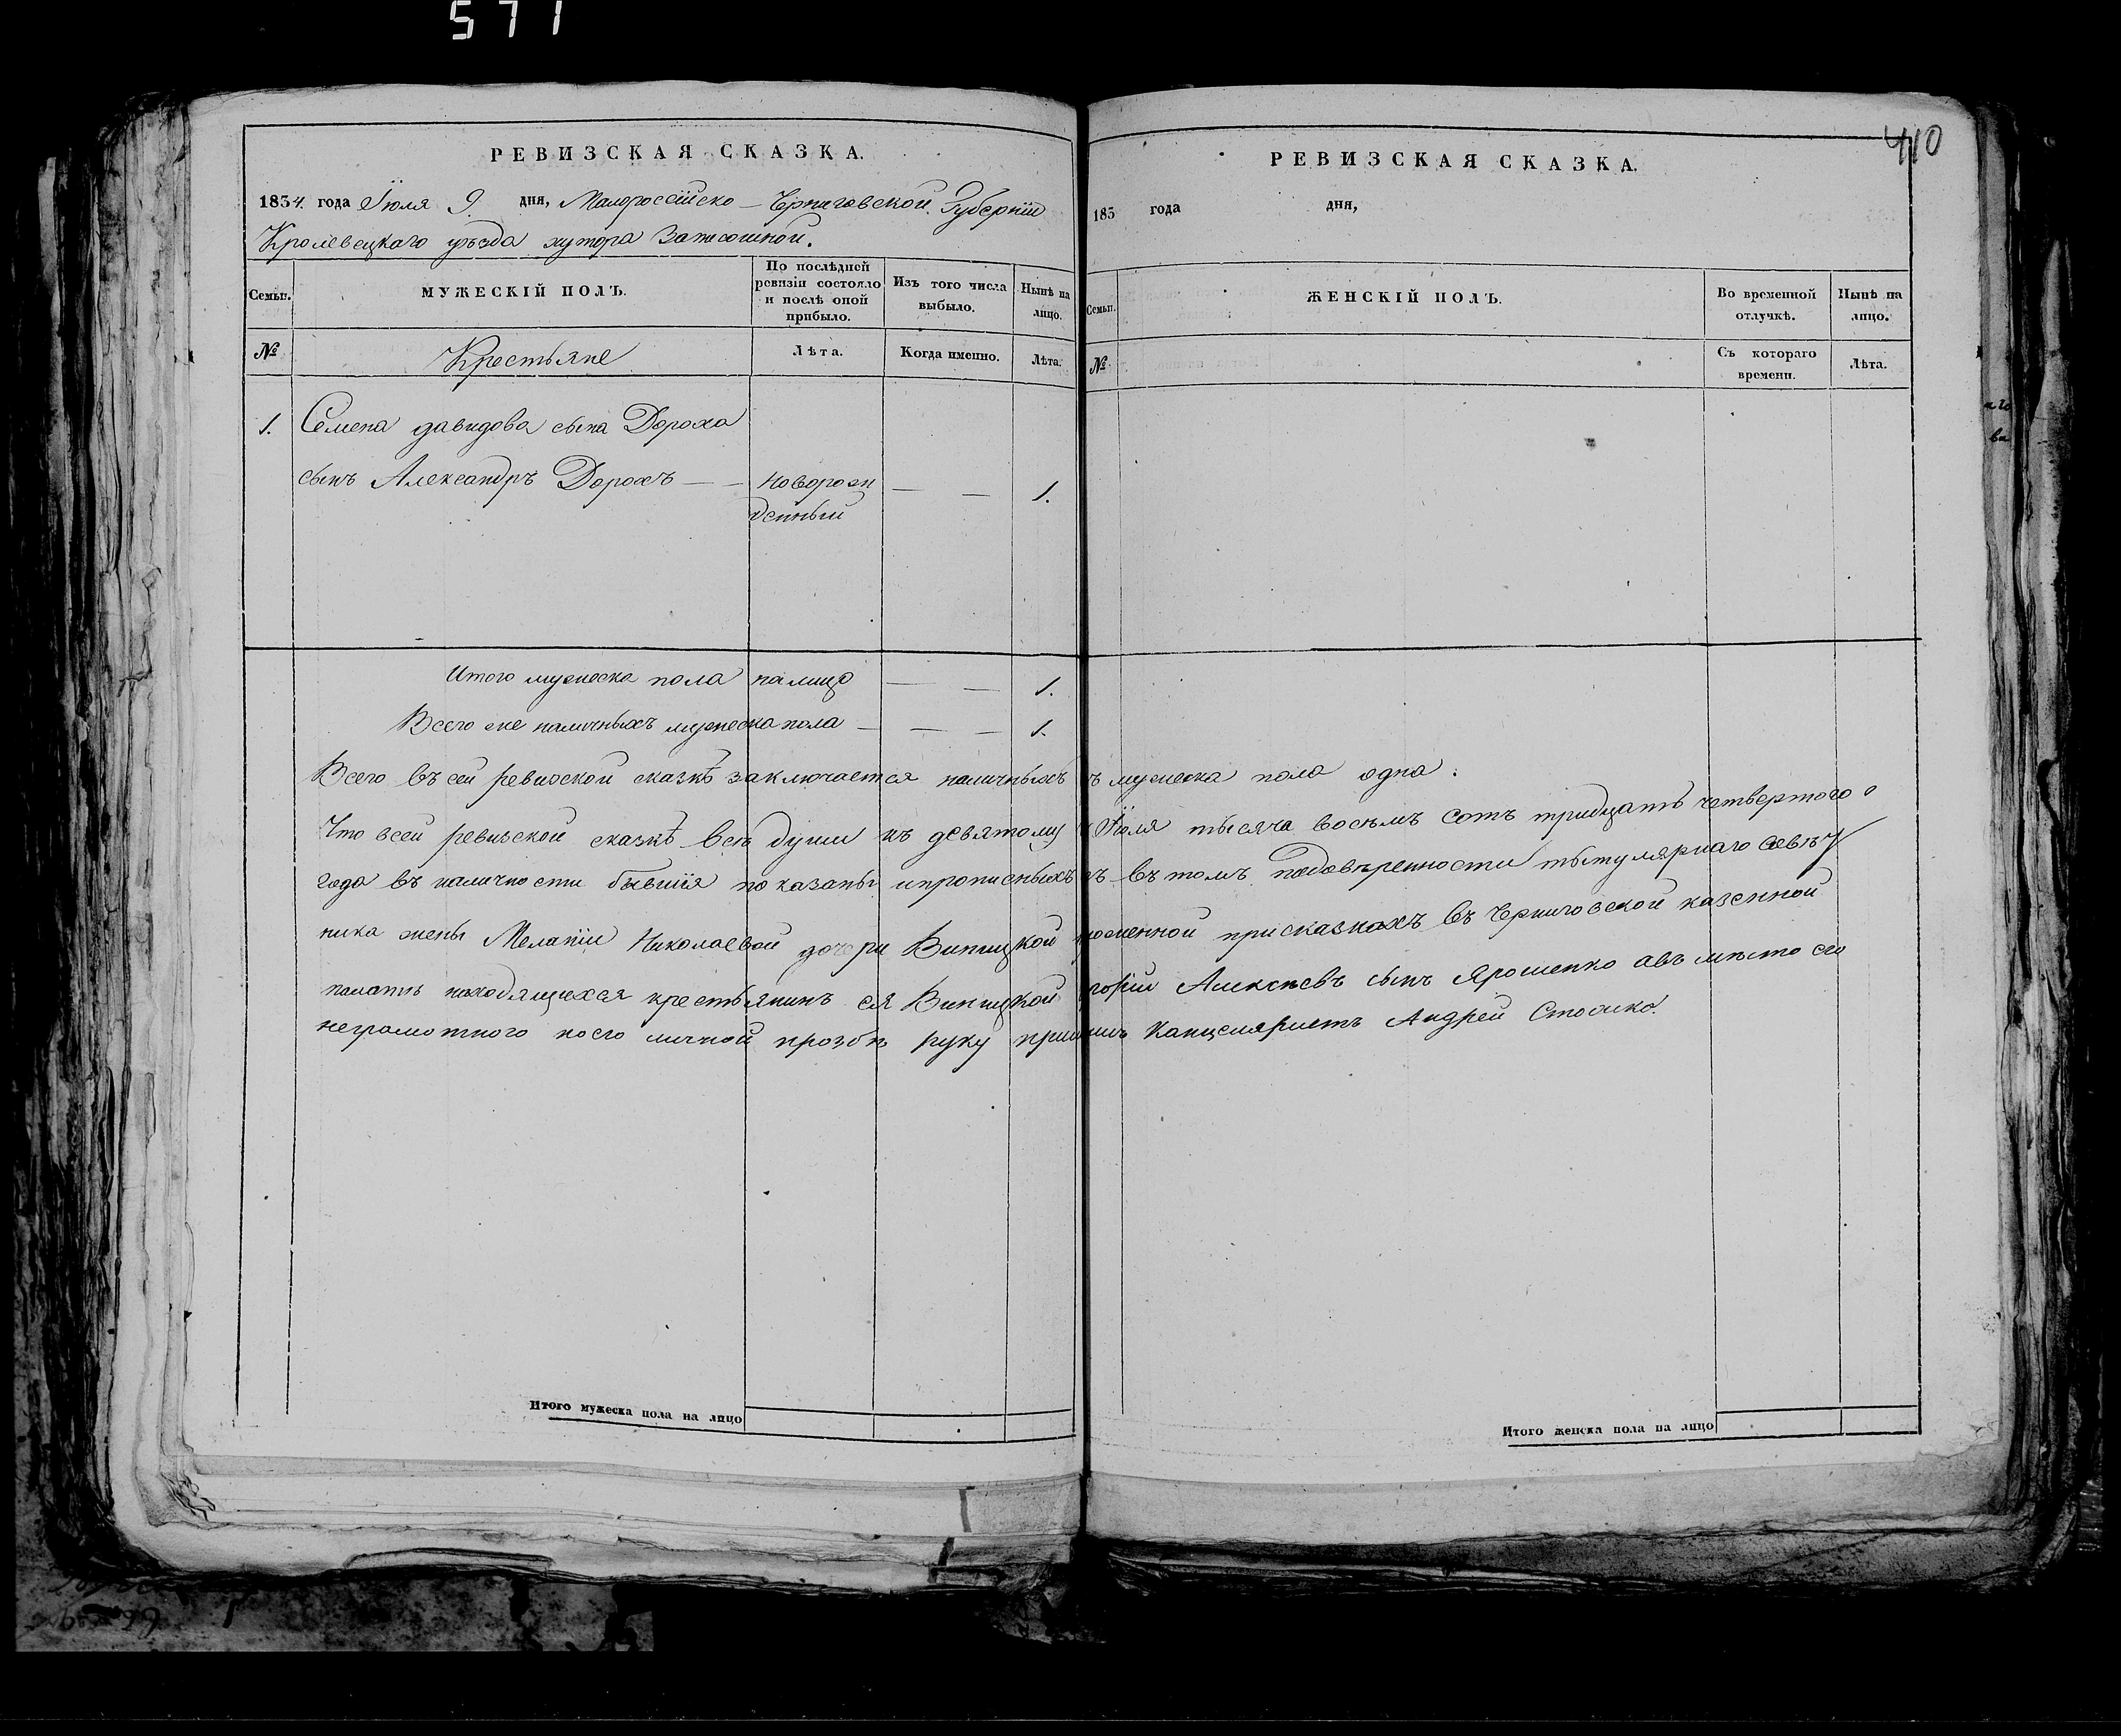 571
410
РЕВИЗСКАЯ СКАЗКА.
1834. года Іюля 9. дня, Малороссійско-Черниговской Губерніи
Кролевецкаго уѣзда хутора
Семьи. МУЖЕСКІЙ ПОЛЪ. По послѣдней ревизіи состояло и послѣ оной прибыло. Изъ того числа выбыло. Нынѣ на лицо.
№ Крестьяне Лѣта. Когда именно. Лѣта.
1. Семена давидова сына Дороха
сынъ Александръ Дорохъ — — новорож — — 1.
денный
Итого мужеска пола налицо — — 1.
Всего же наличныхъ мужеска пола — — — 1.
РЕВИЗСКАЯ СКАЗКА.
183 года дня,
Семьи. ЖЕНСКІЙ ПОЛЪ. Во временной отлучкѣ. Нынѣ на лицо.
№ Съ котораго времени. Лѣта.
Всего въ сей ревизской сказкѣ заключается наличныхъ мужеска пола одна.
Что всей ревизской сказкѣ всѣ души къ девятому Іюля тысяча восемь сотъ тридцать четвертого
года въ наличности бывшія показаны ипрописныхъ въ томъ подовѣренности тытулярнаго совѣт
ника жены Меланіи Николаевой дочери Винницкой присказкахъ въ Черниговской казенной
палатѣ находящихся крестьянинъ ея Винницкой Алексѣевъ сынъ Ярошенко авъмѣсто его
неграмотного поего личной прозбѣ руку Канцеляристъ Андрей
Итого мужеска пола на лицо
Итого женска пола на лицо